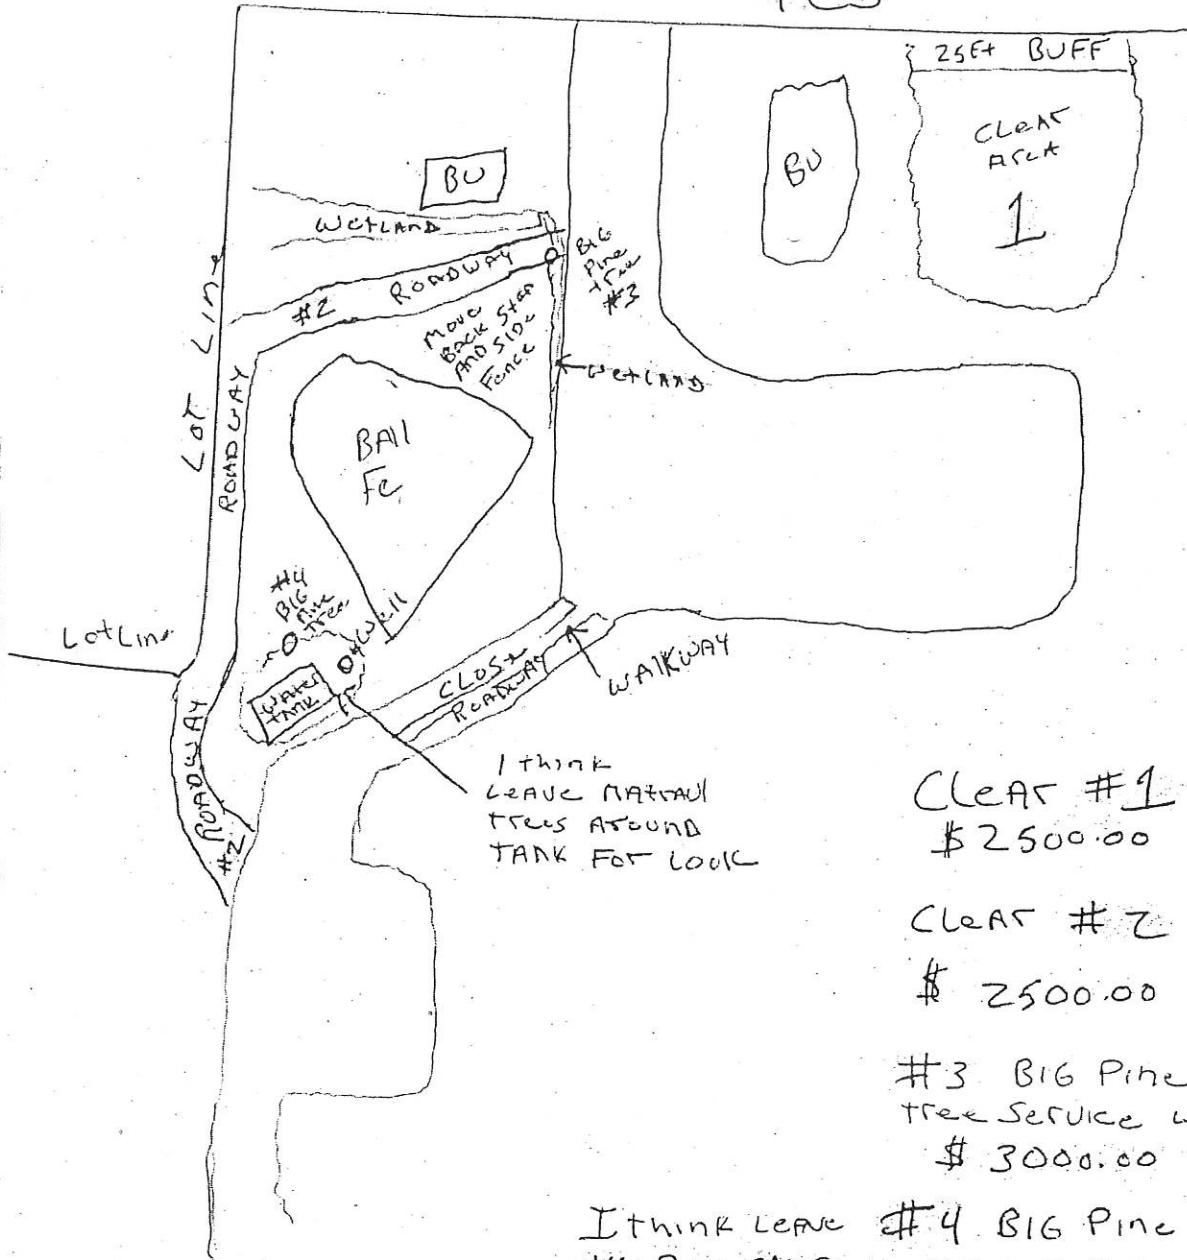 25Ft BUFF
CLeAr
ArEA
1
BU
BU
WetLAND
ROADWAY
#2
BIG
Pine
tree
#3
Move
BACK Stop
AND SIDe
Fence
WetLAND
Lot Line
ROADWAY
BAll
Fe
#4
BIG
Pine
Tree
Well
LotLine
WAter
TANK
CLOSe
ROADWAY
WAlKWAY
ROADWAY
#2
I think
LeAve NAtrAul
trees Around
TANK For LOOK
CleAr #1
$2500.00
CleAr #2
$ 2500.00
#3 BIG Pine
tree Service
$ 3000.00
I think LeAve #4 BIG Pine